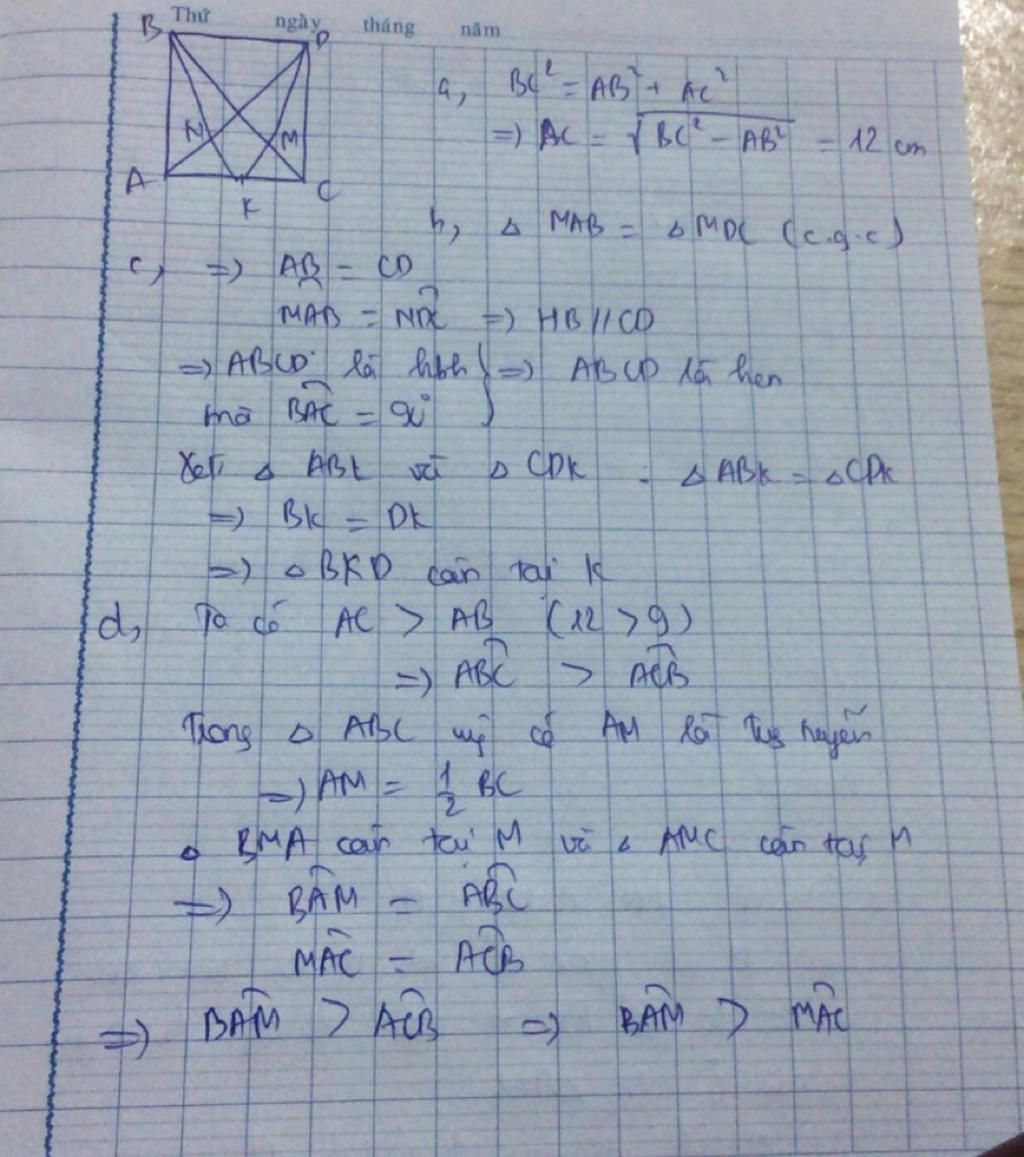 Thứ ngày tháng năm
B D
N M
A C
K
a, BC² = AB² + AC²
=> AC = √BC² - AB² = 12 cm
b, Δ MAB = Δ MDC (c.g.c)
c, => AB = CD
MAB = MDC => AB // CD
=> ABCD là hbh } => ABCD là hcn
mà BAC = 90°
Xét Δ ABK và Δ CDK : Δ ABK = Δ CDK
=> BK = DK
=> Δ BKD cân tại K
d, Ta có AC > AB (12 > 9)
=> ABC > ACB
Trong Δ ABC có AM là huyến
=> AM = 1/2 BC
Δ BMA cân tại M và Δ AMC cân tại M
=> BAM = ABC
MAC = ACB
=> BAM > ACB => BAM > MAC